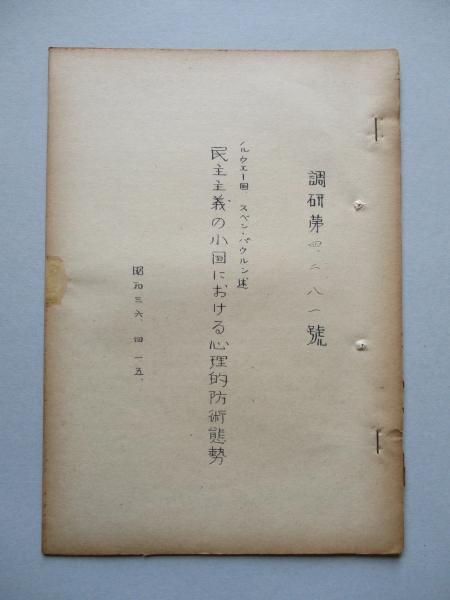 調研第四、二八一號
ノルウェー国 スベン・パウルン述
民主主義の小国における心理的防術態勢
昭和三六、四一五、